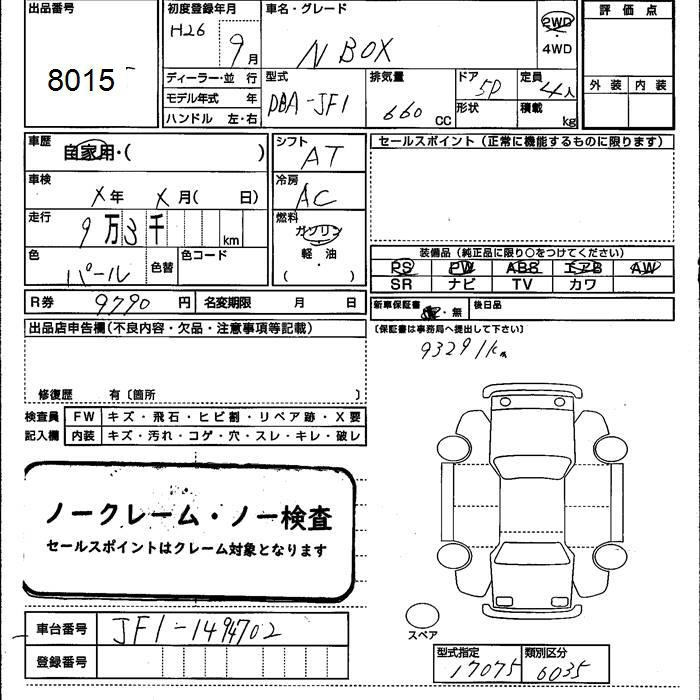 出品番号 初度登録年月 車名・グレード 2WD 評価点
H26 9月 N BOX 4WD
8015 ディーラー・並行 型式 排気量 ドア 定員 外装 内装
モデル年式 年 DBA-JF1 660 CC 5D 4人
ハンドル 左・右 形状 積載 kg
車歴 自家用・( ) シフト AT セールスポイント(正常に機能するものに限ります)
車検 冷房
X年 X月( 日) AC
走行 9万3千 km 燃料 ガソリン
色 パール 色替 色コード 軽・油 ( ) 装備品(純正品に限り○をつけてください)
PS PW ABS エアB AW
SR ナビ TV カワ
R券 9790円 名変期限 月 日 新車保証書 ・無 後日品
出品店申告欄(不良内容・欠品・注意事項等記載) (保証書は事務局へ提出して下さい)
93291km
修復歴 有〔箇所 〕
検査員 FW キズ・飛石・ヒビ割・リペア跡・X要
記入欄 内装 キズ・汚れ・コゲ・穴・スレ・キレ・破レ
ノークレーム・ノー検査
セールスポイントはクレーム対象となります
スペア
車台番号 JF1-1494702
登録番号 型式指定 17075 類別区分 6035